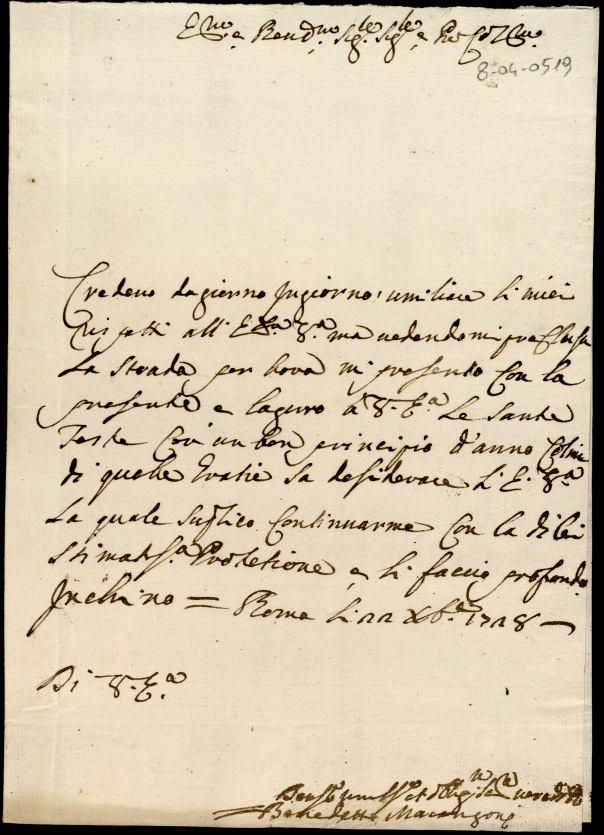 Em.o e Reud.mo Sig.re Sig.re e Pro Col.mo
8-04-0519
Credevo dagiorno Ingiorno, umiliare li miei
Rispetti all E. V.a ma uedendomi preclusa
La Strada per hora mi presento Con la
presente e laguro à V. E.a Le Sante
Feste Con un bon principio d'anno Colmo
di quelle Gratie Sa desiderare L'E. V.a
La quale Suplico Continuarme Con la di lei
Stimatis.a Protetione e li faccio profondo
Inchino = Roma li 22 Xb.e 1728 —
Di V. E.a
Deu.mo umil.mo et Oblig.mo Ser.re uero
Benedetto Marangoni